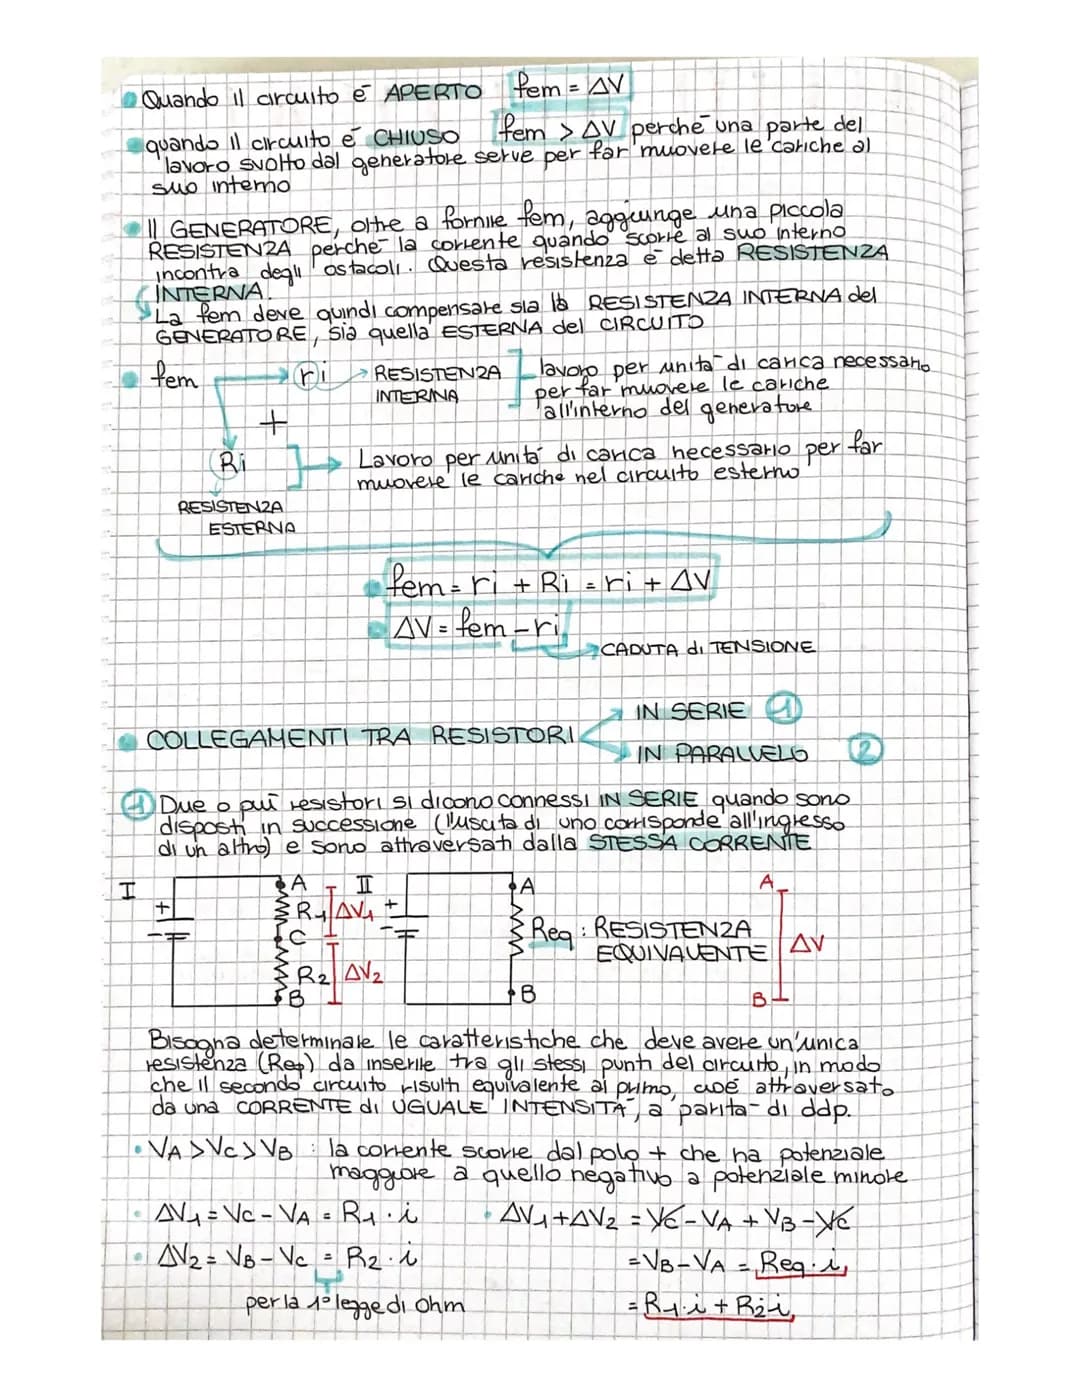 Quando il circuito é APERTO fem = ΔV
quando il circuito é CHIUSO fem > ΔV perché una parte del
lavoro svolto dal generatore serve per far muovere le cariche al
suo interno
Il GENERATORE, oltre a fornire fem, aggiunge una piccola
RESISTENZA perché la corrente quando scorre al suo interno
incontra degli ostacoli. Questa resistenza é detta RESISTENZA
INTERNA.
La fem deve quindi compensare sia la RESISTENZA INTERNA del
GENERATORE, sia quella ESTERNA del CIRCUITO
fem → ri → RESISTENZA INTERNA
lavoro per unitá di carica necessario
per far muovere le cariche
all'interno del generatore
+
Ri → Lavoro per unitá di carica necessario per far
muovere le cariche nel circuito esterno
RESISTENZA
ESTERNA
fem = ri + Ri = ri + ΔV
ΔV = fem - ri
CADUTA di TENSIONE
IN SERIE 1
COLLEGAMENTI TRA RESISTORI
IN PARALLELO 2
1 Due o puí resistori si dicono connessi IN SERIE quando sono
disposti in successione (l'uscita di uno corrisponde all'ingresso
di un altro) e sono attraversati dalla STESSA CORRENTE
I + - A R1 ΔV1 C R2 ΔV2 B
II + - A Req : RESISTENZA
EQUIVALENTE
B
A ΔV B
Bisogna determinare le caratteristiche che deve avere un'unica
resistenza (Req) da inserire tra gli stessi punti del circuito, in modo
che il secondo circuito risulti equivalente al primo, cioé attraversato
da una CORRENTE di UGUALE INTENSITÁ, a paritá di ddp.
• VA > VC > VB : la corrente scorre dal polo + che ha potenziale
maggiore a quello negativo a potenziale minore
• ΔV1 = VC - VA = R1 · i
• ΔV2 = VB - VC = R2 · i
per la 1ª legge di Ohm
• ΔV1 + ΔV2 = VC - VA + VB - VC
= VB - VA = Req · i
= R1 · i + R2 i